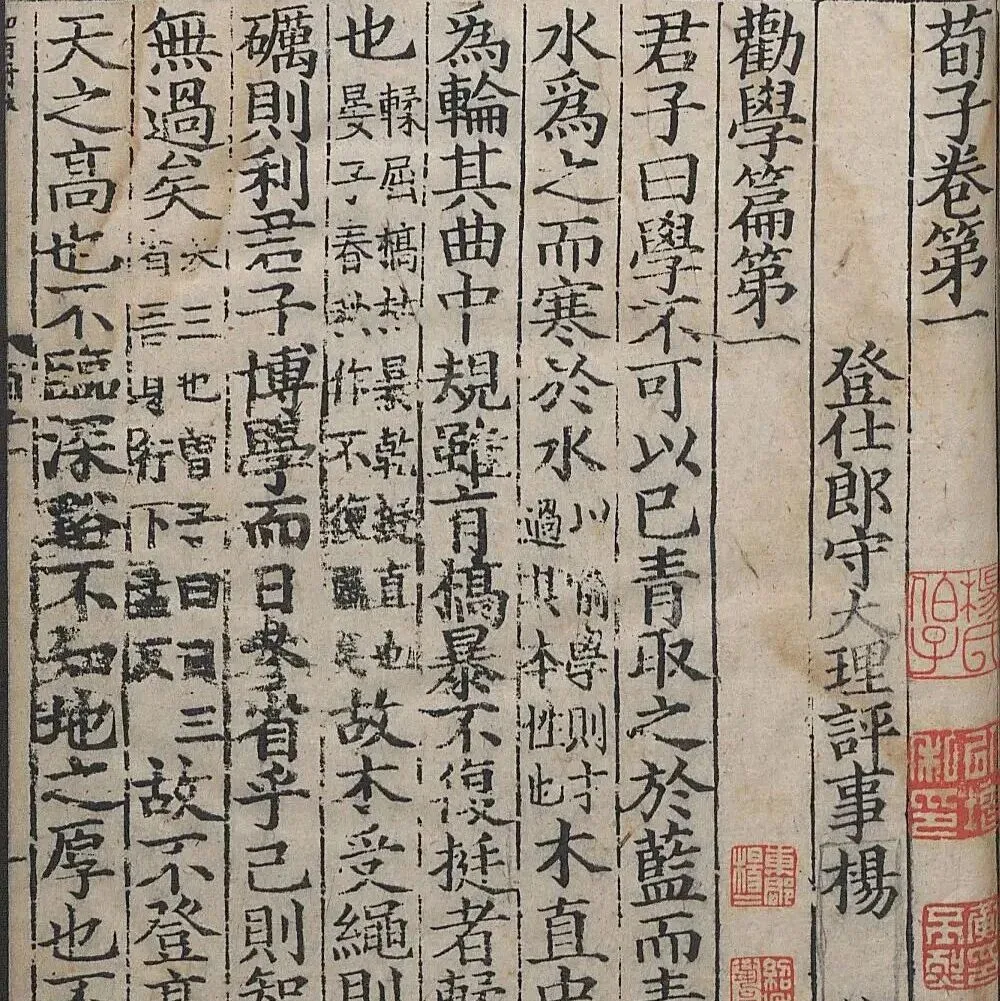 荀子卷第一
登仕郎守大理評事楊
勸學篇第一
君子曰學不可以已青取之於藍而青
水爲之而寒於水以喻學則才過其本性也木直中
爲輪其曲中規雖有槁暴不復挺者輮
也輮屈槁枯暴乾挺直也晏子春秋作不復贏矣故木受繩則
礪則利君子博學而日參省乎己則知
無過矣參三也曾子曰日三省吾身行下孟反故不登高
天之高也不臨深谿不知地之厚也不
東郡楊二